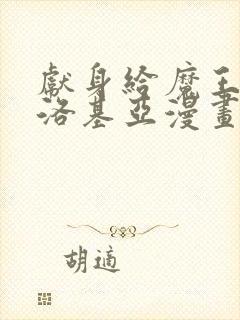 獻身給魔王
洛基亞漫畫
胡適